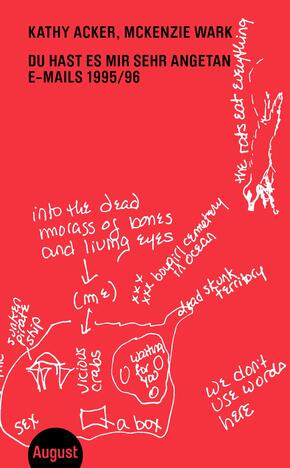 KATHY ACKER, MCKENZIE WARK
DU HAST ES MIR SEHR ANGETAN
E-MAILS 1995/96
the rats eat everything
into the dead
morass of bones
and living eyes
(me)
xxx bougirl cemetery
xxx in ocean
dead skunk
territory
sunken
pirate
ship
vicious
crabs
waiting
for
you
we don't
use words
here
sex
a box
August